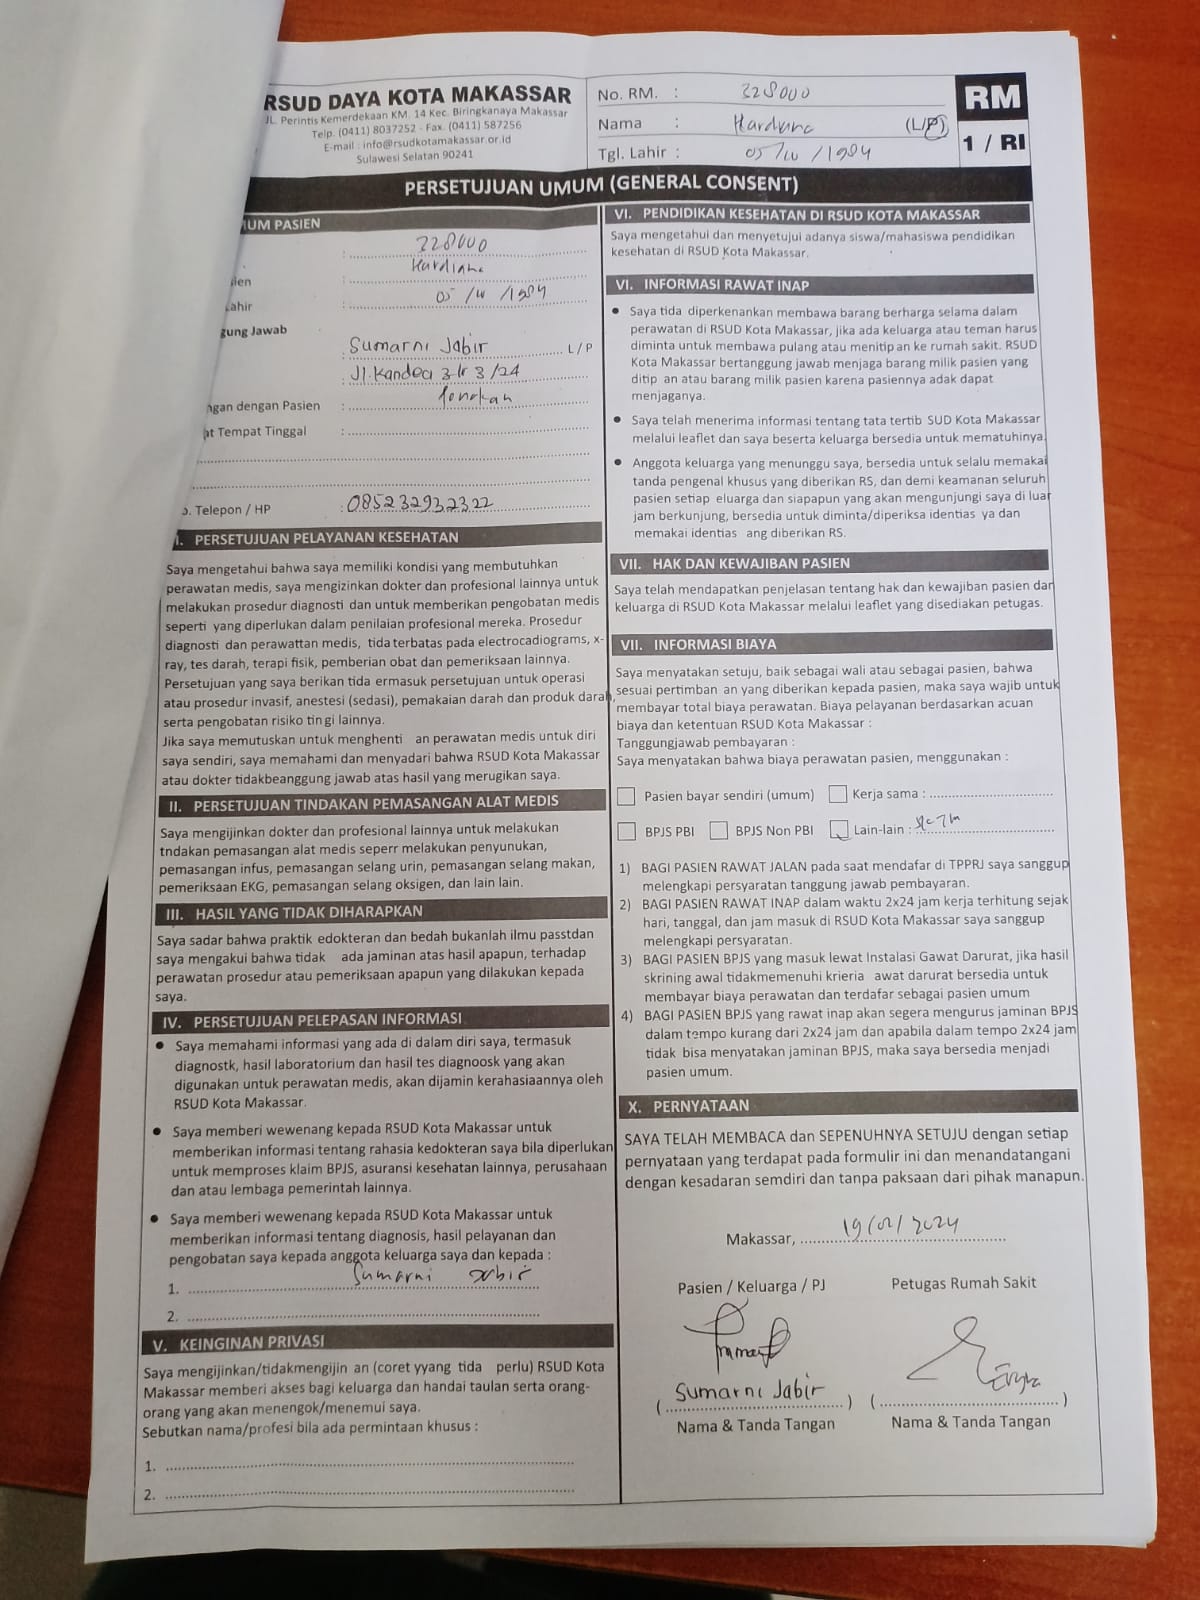 RSUD DAYA KOTA MAKASSAR
JL. Perintis Kemerdekaan KM. 14 Kec. Biringkanaya Makassar
Telp. (0411) 8037252 - Fax. (0411) 587256
E-mail : info@rsudkotamakassar.or.id
Sulawesi Selatan 90241
No. RM. : 328000
Nama : (L/P)
Tgl. Lahir : /1984
RM
1 / RI
PERSETUJUAN UMUM (GENERAL CONSENT)
UM PASIEN
: 328000
: Hardiana
: 05 / /1984
gung Jawab
: Sumarni Jabir L/P
: Jl. Kandea 3 lr 3 /24
ngan dengan Pasien :
at Tempat Tinggal :
o. Telepon / HP : 085232932322
I. PERSETUJUAN PELAYANAN KESEHATAN
Saya mengetahui bahwa saya memiliki kondisi yang membutuhkan
perawatan medis, saya mengizinkan dokter dan profesional lainnya untuk
melakukan prosedur diagnosti dan untuk memberikan pengobatan medis
seperti yang diperlukan dalam penilaian profesional mereka. Prosedur
diagnosti dan perawattan medis, tida terbatas pada electrocadiograms, x-
ray, tes darah, terapi fisik, pemberian obat dan pemeriksaan lainnya.
Persetujuan yang saya berikan tida ermasuk persetujuan untuk operasi
atau prosedur invasif, anestesi (sedasi), pemakaian darah dan produk darah,
serta pengobatan risiko tin gi lainnya.
Jika saya memutuskan untuk menghenti an perawatan medis untuk diri
saya sendiri, saya memahami dan menyadari bahwa RSUD Kota Makassar
atau dokter tidakbeanggung jawab atas hasil yang merugikan saya.
II. PERSETUJUAN TINDAKAN PEMASANGAN ALAT MEDIS
Saya mengijinkan dokter dan profesional lainnya untuk melakukan
tndakan pemasangan alat medis seperr melakukan penyunukan,
pemasangan infus, pemasangan selang urin, pemasangan selang makan,
pemeriksaan EKG, pemasangan selang oksigen, dan lain lain.
III. HASIL YANG TIDAK DIHARAPKAN
Saya sadar bahwa praktik edokteran dan bedah bukanlah ilmu passtdan
saya mengakui bahwa tidak ada jaminan atas hasil apapun, terhadap
perawatan prosedur atau pemeriksaan apapun yang dilakukan kepada
saya.
IV. PERSETUJUAN PELEPASAN INFORMASI
● Saya memahami informasi yang ada di dalam diri saya, termasuk
diagnostk, hasil laboratorium dan hasil tes diagnoosk yang akan
digunakan untuk perawatan medis, akan dijamin kerahasiaannya oleh
RSUD Kota Makassar.
● Saya memberi wewenang kepada RSUD Kota Makassar untuk
memberikan informasi tentang rahasia kedokteran saya bila diperlukan
untuk memproses klaim BPJS, asuransi kesehatan lainnya, perusahaan
dan atau lembaga pemerintah lainnya.
● Saya memberi wewenang kepada RSUD Kota Makassar untuk
memberikan informasi tentang diagnosis, hasil pelayanan dan
pengobatan saya kepada anggota keluarga saya dan kepada :
1. Sumarni Jabir
2.
V. KEINGINAN PRIVASI
Saya mengijinkan/tidakmengijin an (coret yyang tida perlu) RSUD Kota
Makassar memberi akses bagi keluarga dan handai taulan serta orang-
orang yang akan menengok/menemui saya.
Sebutkan nama/profesi bila ada permintaan khusus :
1.
2.
VI. PENDIDIKAN KESEHATAN DI RSUD KOTA MAKASSAR
Saya mengetahui dan menyetujui adanya siswa/mahasiswa pendidikan
kesehatan di RSUD Kota Makassar.
VI. INFORMASI RAWAT INAP
● Saya tida diperkenankan membawa barang berharga selama dalam
perawatan di RSUD Kota Makassar, jika ada keluarga atau teman harus
diminta untuk membawa pulang atau menitip an ke rumah sakit. RSUD
Kota Makassar bertanggung jawab menjaga barang milik pasien yang
ditip an atau barang milik pasien karena pasiennya adak dapat
menjaganya.
● Saya telah menerima informasi tentang tata tertib SUD Kota Makassar
melalui leaflet dan saya beserta keluarga bersedia untuk mematuhinya.
● Anggota keluarga yang menunggu saya, bersedia untuk selalu memakai
tanda pengenal khusus yang diberikan RS, dan demi keamanan seluruh
pasien setiap eluarga dan siapapun yang akan mengunjungi saya di luar
jam berkunjung, bersedia untuk diminta/diperiksa identias ya dan
memakai identias ang diberikan RS.
VII. HAK DAN KEWAJIBAN PASIEN
Saya telah mendapatkan penjelasan tentang hak dan kewajiban pasien dan
keluarga di RSUD Kota Makassar melalui leaflet yang disediakan petugas.
VII. INFORMASI BIAYA
Saya menyatakan setuju, baik sebagai wali atau sebagai pasien, bahwa
sesuai pertimban an yang diberikan kepada pasien, maka saya wajib untuk
membayar total biaya perawatan. Biaya pelayanan berdasarkan acuan
biaya dan ketentuan RSUD Kota Makassar :
Tanggungjawab pembayaran :
Saya menyatakan bahwa biaya perawatan pasien, menggunakan :
Pasien bayar sendiri (umum) Kerja sama :
BPJS PBI BPJS Non PBI Lain-lain :
1) BAGI PASIEN RAWAT JALAN pada saat mendafar di TPPRJ saya sanggup
melengkapi persyaratan tanggung jawab pembayaran.
2) BAGI PASIEN RAWAT INAP dalam waktu 2x24 jam kerja terhitung sejak
hari, tanggal, dan jam masuk di RSUD Kota Makassar saya sanggup
melengkapi persyaratan.
3) BAGI PASIEN BPJS yang masuk lewat Instalasi Gawat Darurat, jika hasil
skrining awal tidakmemenuhi krieria awat darurat bersedia untuk
membayar biaya perawatan dan terdafar sebagai pasien umum
4) BAGI PASIEN BPJS yang rawat inap akan segera mengurus jaminan BPJS
dalam tempo kurang dari 2x24 jam dan apabila dalam tempo 2x24 jam
tidak bisa menyatakan jaminan BPJS, maka saya bersedia menjadi
pasien umum.
X. PERNYATAAN
SAYA TELAH MEMBACA dan SEPENUHNYA SETUJU dengan setiap
pernyataan yang terdapat pada formulir ini dan menandatangani
dengan kesadaran semdiri dan tanpa paksaan dari pihak manapun.
Makassar, 19/02/2024
Pasien / Keluarga / PJ Petugas Rumah Sakit
( Sumarni Jabir ) ( )
Nama & Tanda Tangan Nama & Tanda Tangan